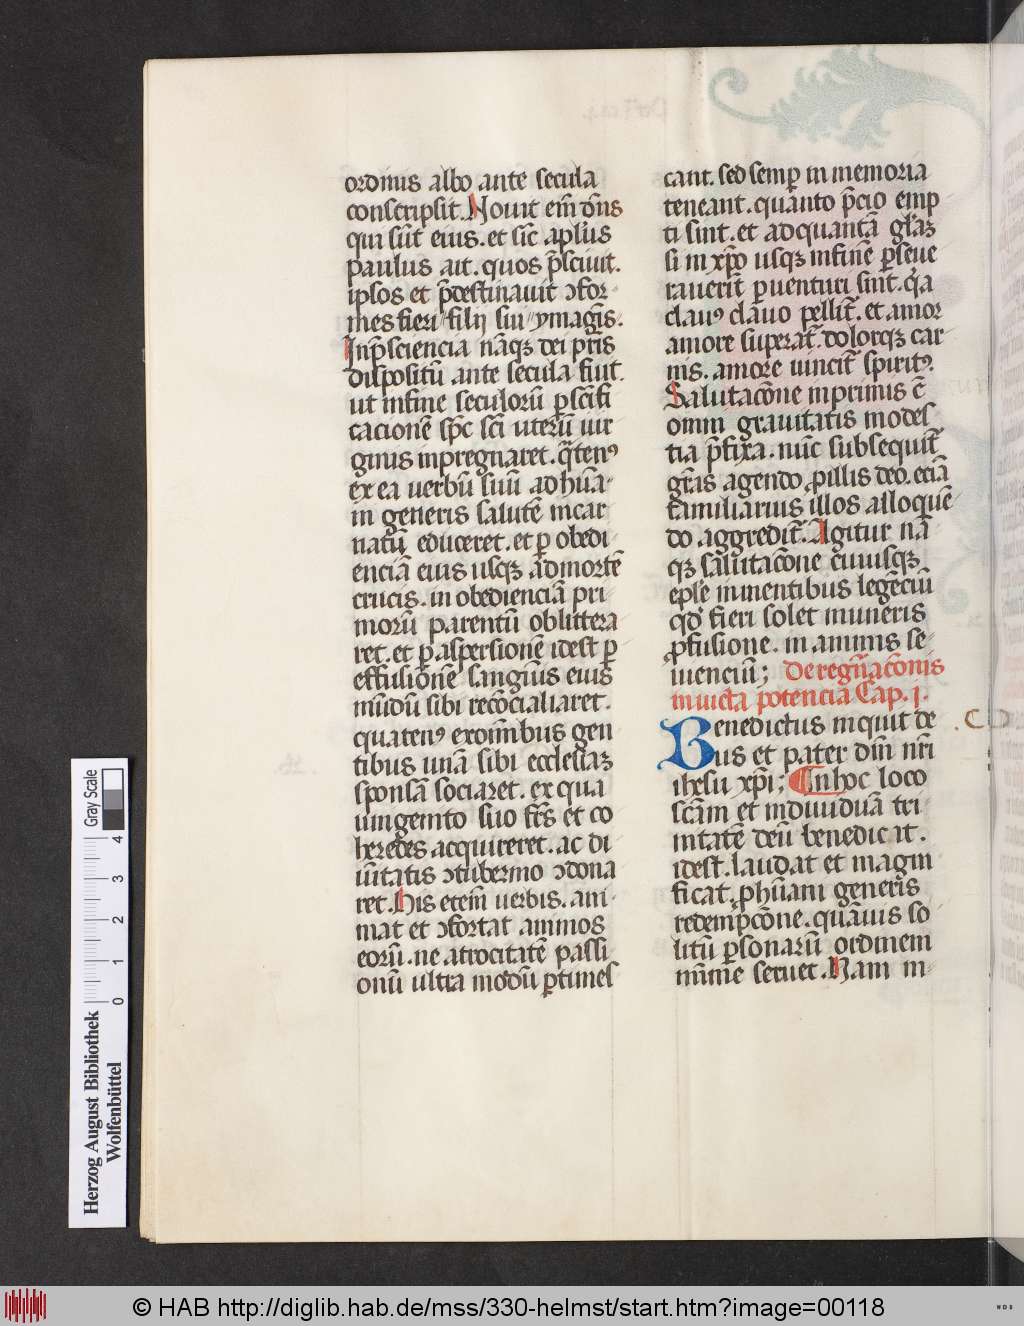 ordinis albo ante secula
conscripsit. Nouit em̄ dn̄s
qui sūt eius. et sic̄ apl̄us
paulus ait. quos p̄sciuit.
ipsos et p̄destinauit ↄfor-
mes fieri filij sui ymagīs.
In p̄sciencia nāqꝫ dei pr̄is
dispositū ante secula fuit.
ut in fine seculorū ꝑ scīfi
cacionē sp̄c sc̄i uterū uir
ginis inpregnaret. q̄tenꝰ
ex ea uerbū suū ad hūa-
in generis salutē incar
natū educeret. et ꝑ obedi-
enciā eius usqꝫ ad mortē
crucis. in obedienciā pri
morū parentū oblittera
ret. et ꝑ aspersionē idest ꝑ
effusionē sangīus eius
mūdū sibi recōcialiaret.
quatenꝰ ex oīmbus gen
tibus unā sibi ecclesiaꝫ
sponsā sociaret. ex qua
unigenito suo fr̄s et co
heredes acquireret. ac di
uītatis ↄtubernio ↄdona
ret. His etem̄ uerbis. ani-
mat et ↄfortat animos
eorū. ne atrocitatē passi
onū ultra modū ꝑtimes
cant. sed semꝑ in memoria
teneant. quanto p̄cio emp
ti sint. et ad quantā gl̄aꝫ
si in xp̄o usqꝫ in finē ꝑseue
rauerīt ꝑuenturi sint. q̇a
clauꝰ clauo pellit̄. et amor
amore superat̄. dolorqꝫ car
nis. amore uincit̄ spiritꝰ.
Salutacōne inprimis cē
omni grauitatis modes
tia p̄fixa. nūc subsequit̄
gr̄as agendo ꝓ illis deo. eciā
familiarius illos alloquē
do aggredit̄. Agitur nā
qꝫ salutacōne cuiusqꝫ
ep̄le in mentibus legēciū
qd̄ fieri solet muneris
ꝓfusione. in animis se-
uienciū; De regn̄acōnis
inuicta potencia Cap. j.
Benedictus inquit de
us et pater dīm nr̄i
ihesu xp̄i; In hoc loco
sc̄am et indiuiduā tri
nitatē deū benedicat.
idest. laudat et magni
ficat. ꝓ hūani generis
redemp̄cōne. quāuis so
litū ꝑsonarū ordinem
mīme seruet. Nam in-
Herzog August Bibliothek
Wolfenbüttel
0 1 2 3 4
Gray Scale
© HAB http://diglib.hab.de/mss/330-helmst/start.htm?image=00118